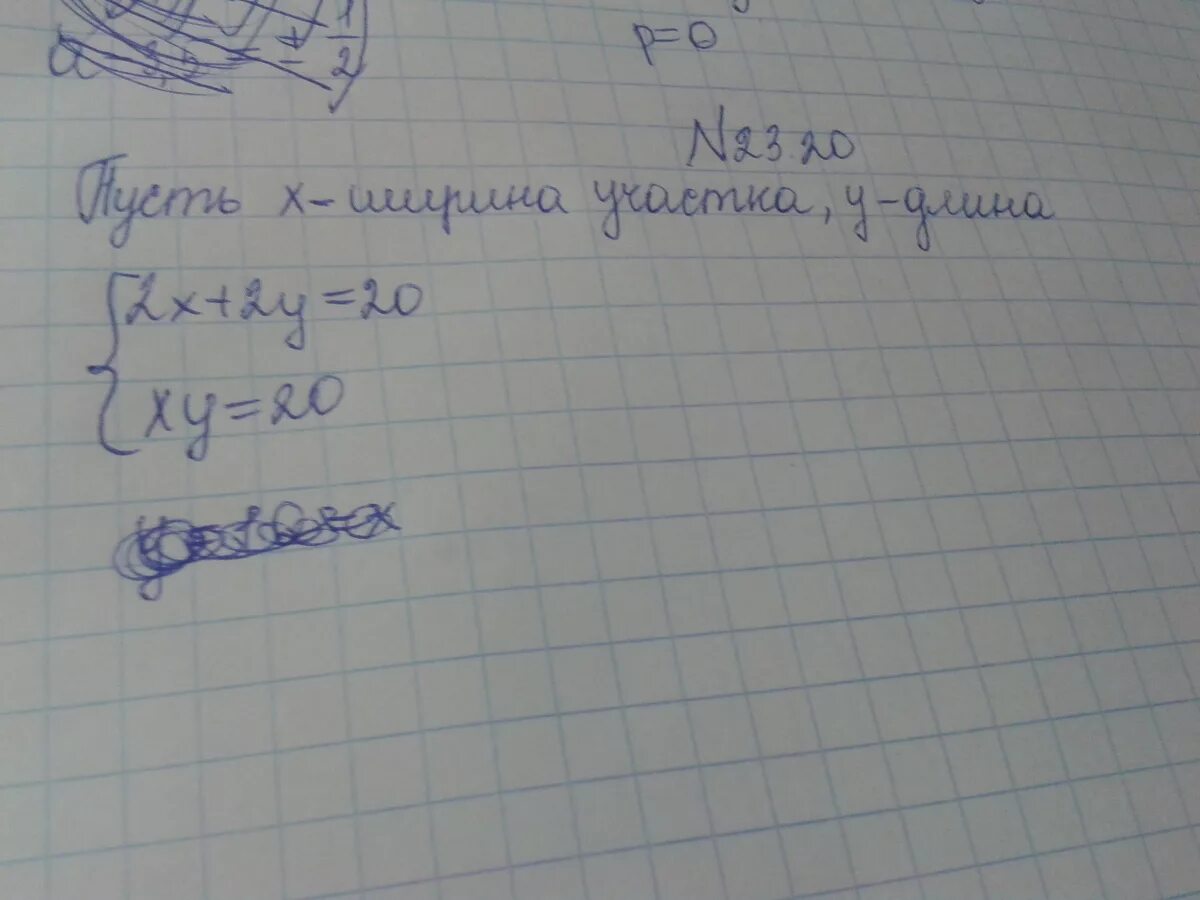 p=0
N23.20
Пусть x-ширина участка, y-длина
2x+2y=20
xy=20